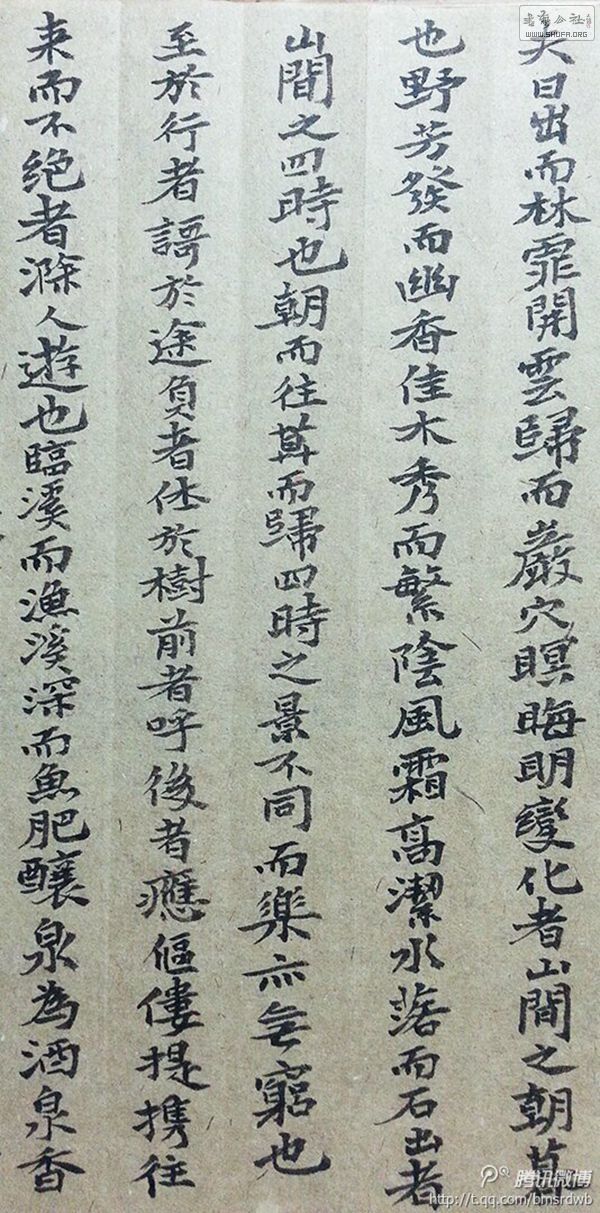 夫日出而林霏開雲歸而巖穴暝晦明變化者山間之朝暮
也野芳發而幽香佳木秀而繁陰風霜高潔水落而石出者
山間之四時也朝而往暮而歸四時之景不同而樂亦無窮也
至於行者謌於途負者休於樹前者呼後者應傴僂提携往
来而不絕者滁人遊也臨溪而漁溪深而魚肥釀泉為酒泉香
书法公社
WWW.SHUFA.ORG
腾讯微博
http://t.qq.com/bmsrdwb